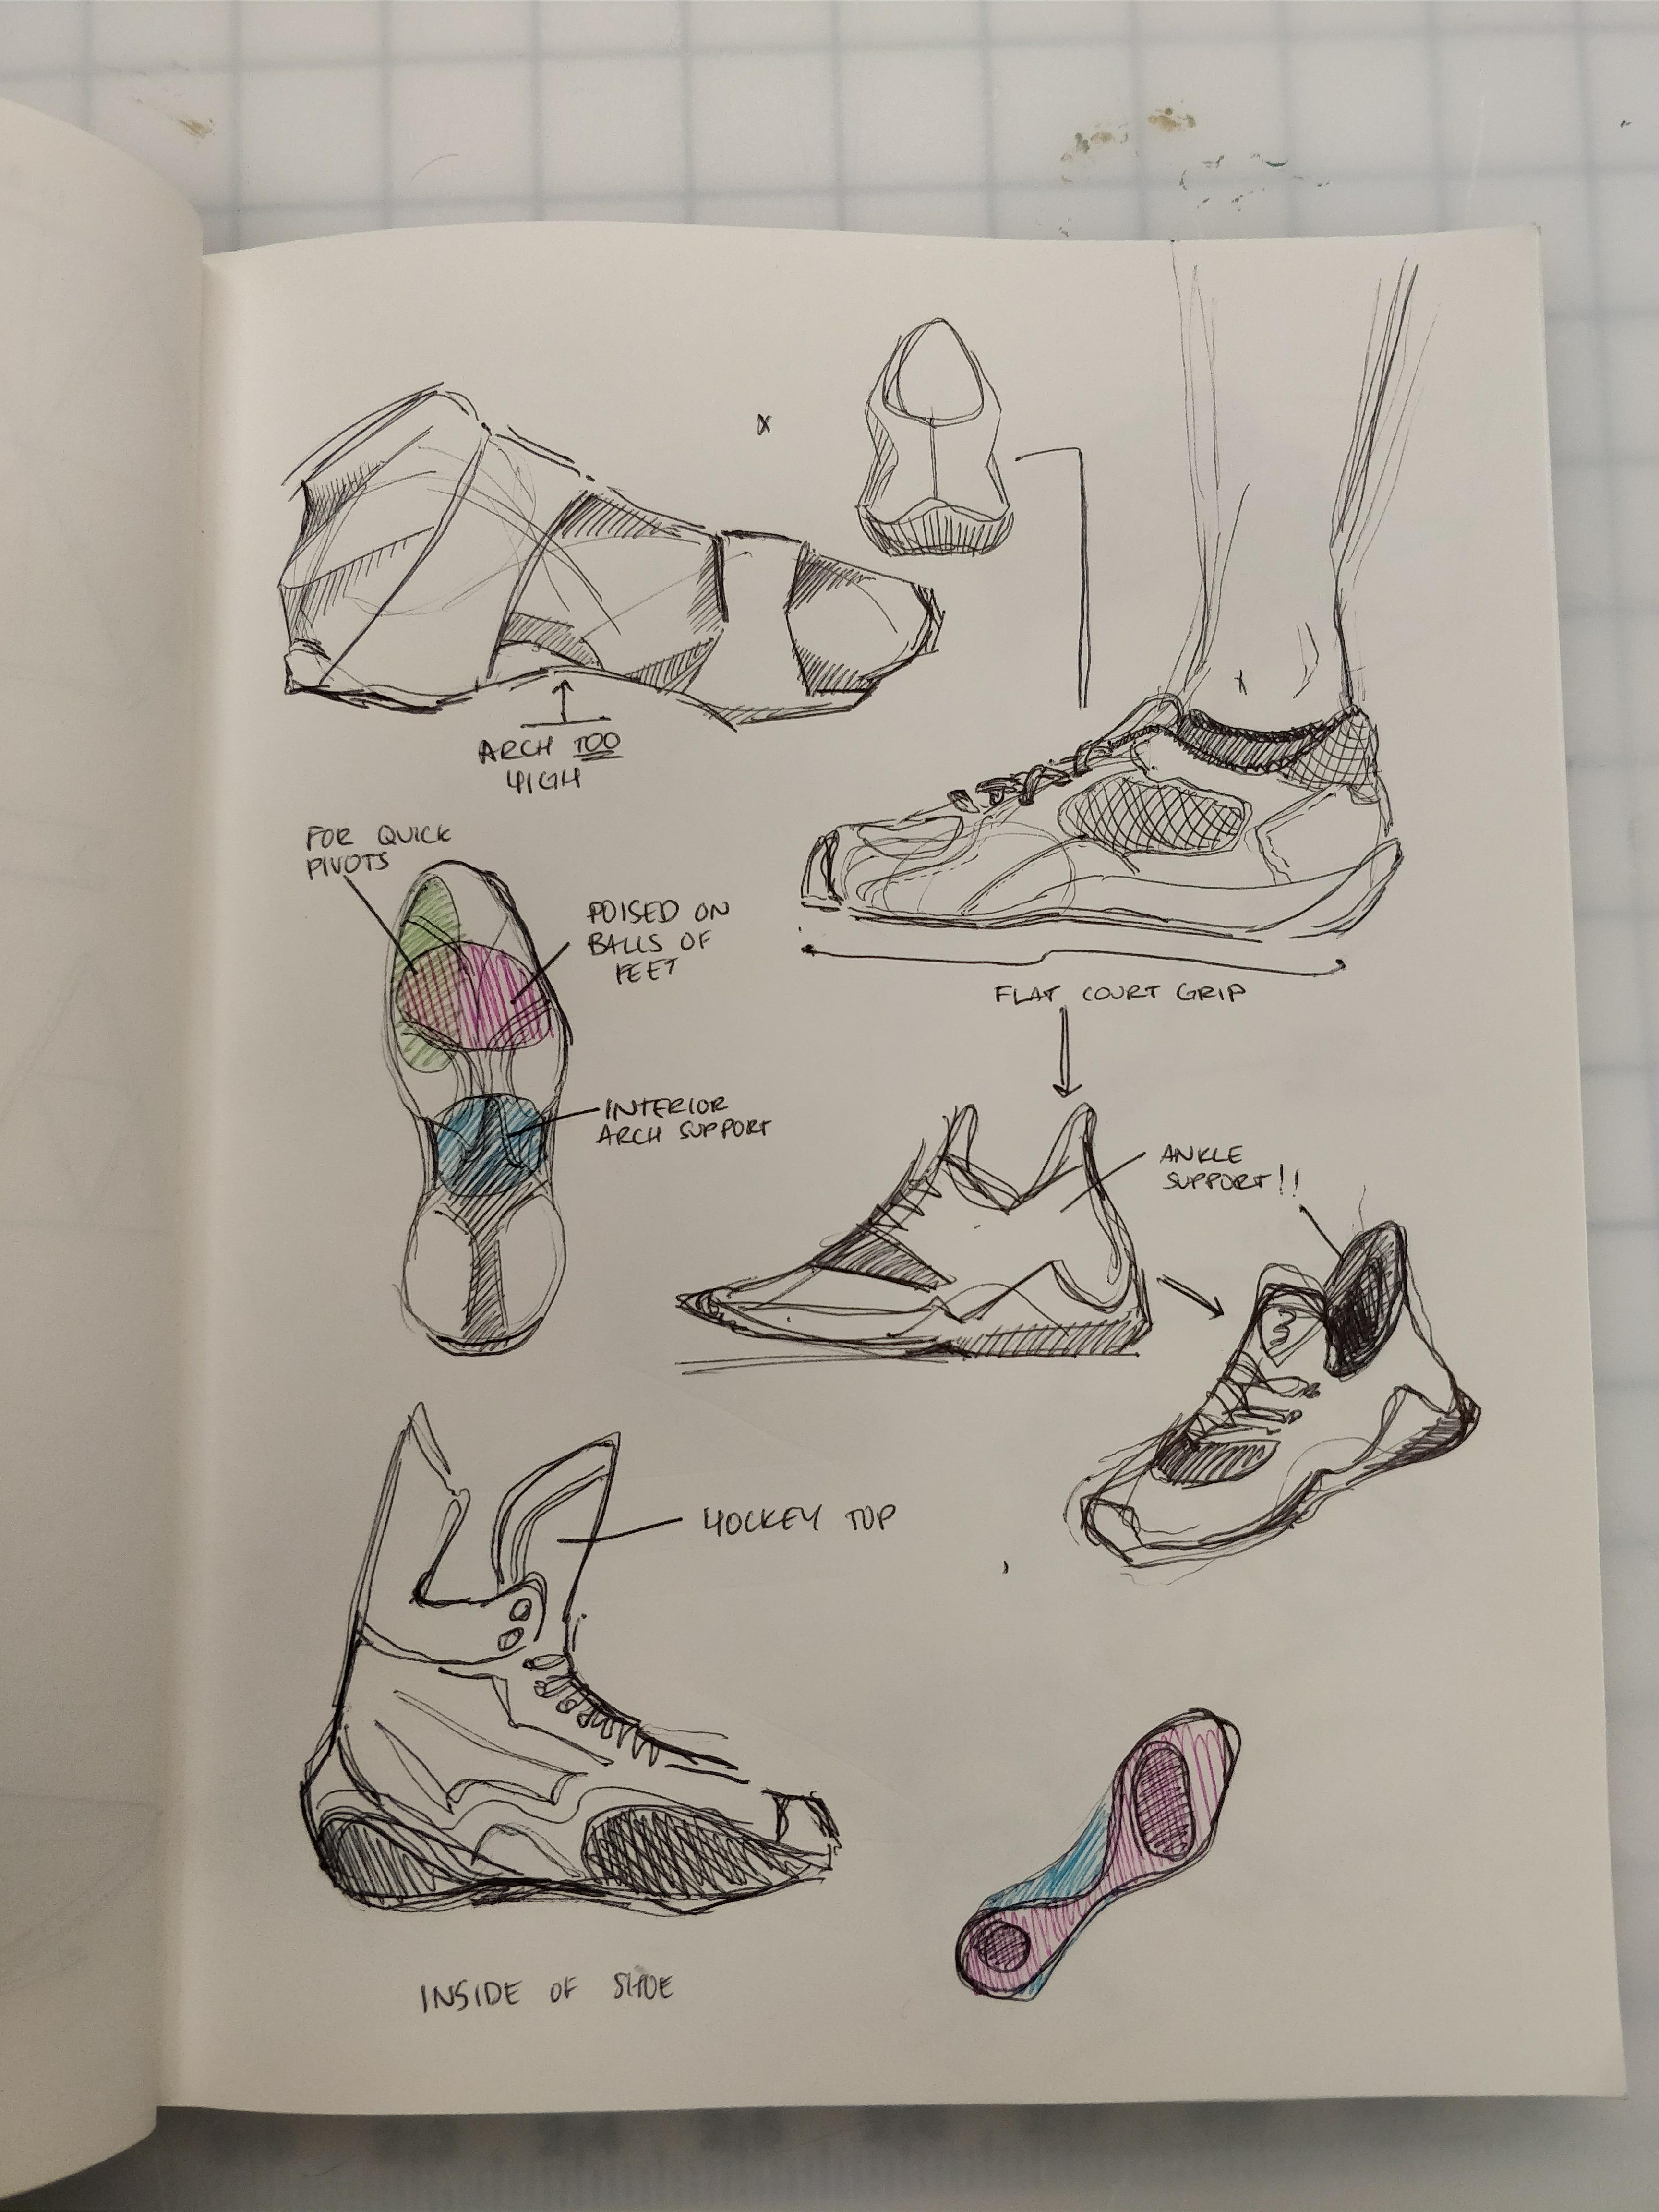 ARCH TOO
HIGH
FOR QUICK
PIVOTS
POISED ON
BALLS OF
FEET
FLAT COURT GRIP
INTERIOR
ARCH SUPPORT
ANKLE
SUPPORT!!
HOCKEY TOP
INSIDE OF SHOE